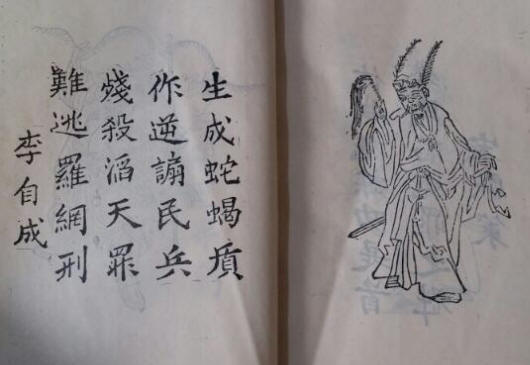 生成蛇蝎貭
作逆民兵
殘殺滔天罪
難逃羅網刑
李自成